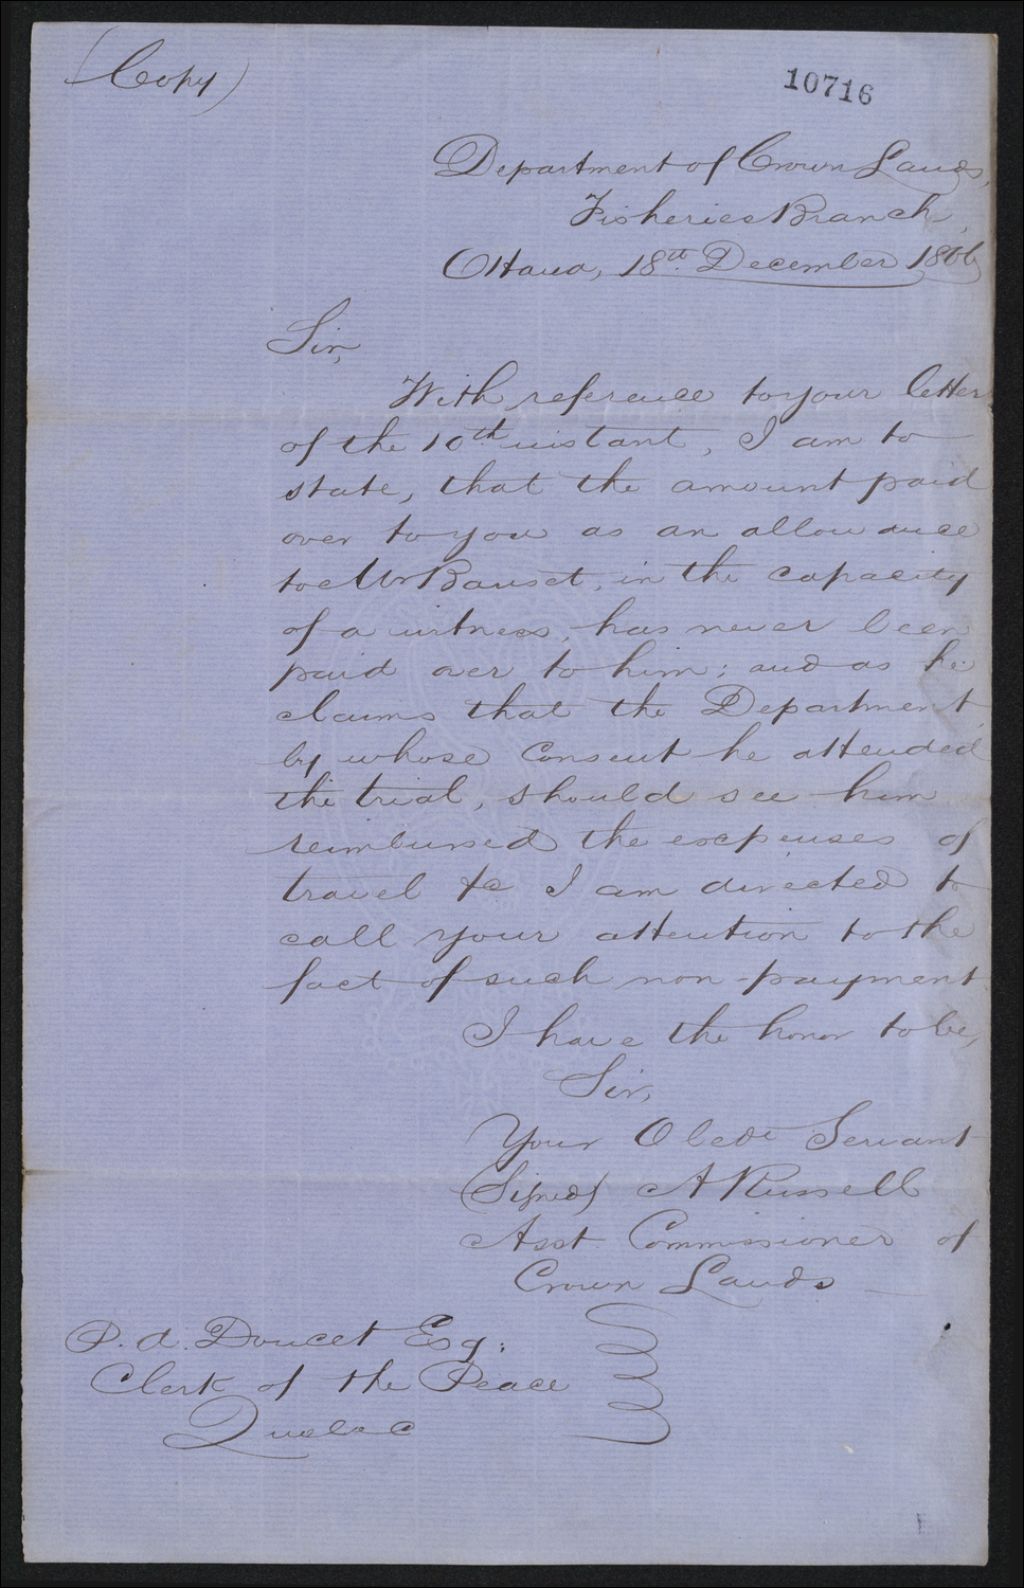 (Copy)
10716
Department of Crown Lands,
Fisheries Branch,
Ottawa, 18th December 1866
Sir,
With reference to your letter
of the 10th instant, I am to
state, that the amount paid
over to you as an allowance
to Mr Bauset, in the capacity
of a witness, has never been
paid over to him; and as he
claims that the Department,
by whose consent he attended
the trial, should see him
reimbursed the expenses of
travel &c I am directed to
call your attention to the
fact of such non payment.
I have the honor to be,
Sir,
Your Obedt Servant
(Signed) A Russell
Asst. Commissioner of
Crown Lands
P. A. Doucet Esq:
Clerk of the Peace
Quebec